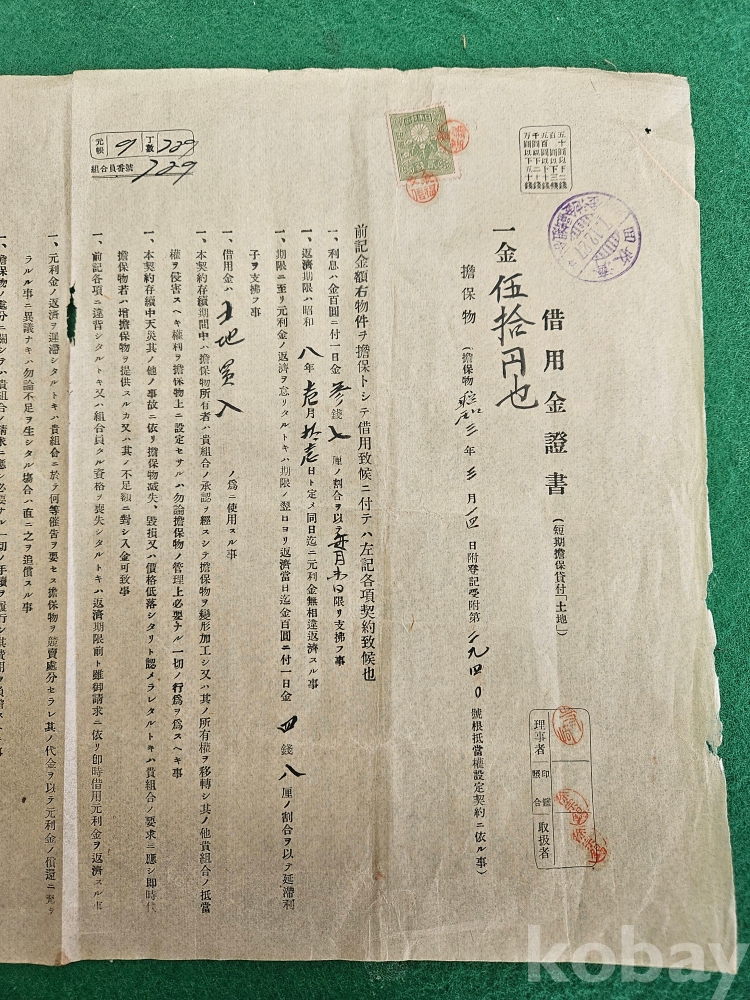 借用金證書 (短期擔保貸付「土地」)
一金 伍拾円也
擔保物 (擔保物 昭和三年三月 日附登記受附第 九四〇 號根抵當權設定契約ニ依ル事)
前記金額右物件ヲ擔保トシテ借用致候ニ付テハ左記各項契約致候也
一、利息ハ金百圓ニ付一日金參錢 厘ノ割合ヲ以テ毎月末日限リ支拂フ事
一、返濟期限ハ昭和八年壱月拾壱日ト定メ同日迄ニ元利金無相違返濟スル事
一、期限ニ至リ元利金ノ返濟ヲ怠リタルトキハ期限ノ翌日ヨリ返濟當日迄金百圓ニ付一日金四錢八厘ノ割合ヲ以テ延滯利
子ヲ支拂フ事
一、借用金ハ 土地買入 ノ爲ニ使用スル事
一、本契約存續期間中ハ擔保物所有者ハ貴組合ノ承認ヲ經スシテ擔保物ヲ變形加工シ又ハ其ノ所有權ヲ移轉シ其ノ他貴組合ノ抵當
權ヲ侵害スヘキ權利ヲ擔保物上ニ設定セサルハ勿論擔保物ノ管理上必要ナル一切ノ行爲ヲ爲スヘキ事
一、本契約存續中天災其ノ他ノ事故ニ依リ擔保物滅失、毀損又ハ價格低落シタリト認メラレタルトキハ貴組合ノ要求ニ應シ卽時代
擔保物若ハ增擔保物ヲ提供スルカ又ハ其ノ不足額ニ對シ入金可致事
一、前記各項ニ違背シタルトキ又ハ組合員タル資格ヲ喪失シタルトキハ返濟期限前ト雖御請求ニ依リ卽時借用元利金ヲ返濟スル事
一、元利金ノ返濟ヲ遲滯シタルトキハ貴組合ニ於テ何等催告ヲ要セス擔保物ヲ競賣處分セラレ其ノ代金ヲ以テ元利金ノ償還ニ充ラ
ラルル事ニ異議ナキハ勿論不足ヲ生シタル塲合ハ直ニ之ヲ追償スル事
一、擔保物ノ處分ニ關シテハ貴組合ノ請求ニ應シ必要ナル一切ノ手續ヲ履行シ其費用ヲ負擔スヘキ事
元帳 9 丁數 729
組合員番號 729
理事者 印鑑照合 取扱者
kobay